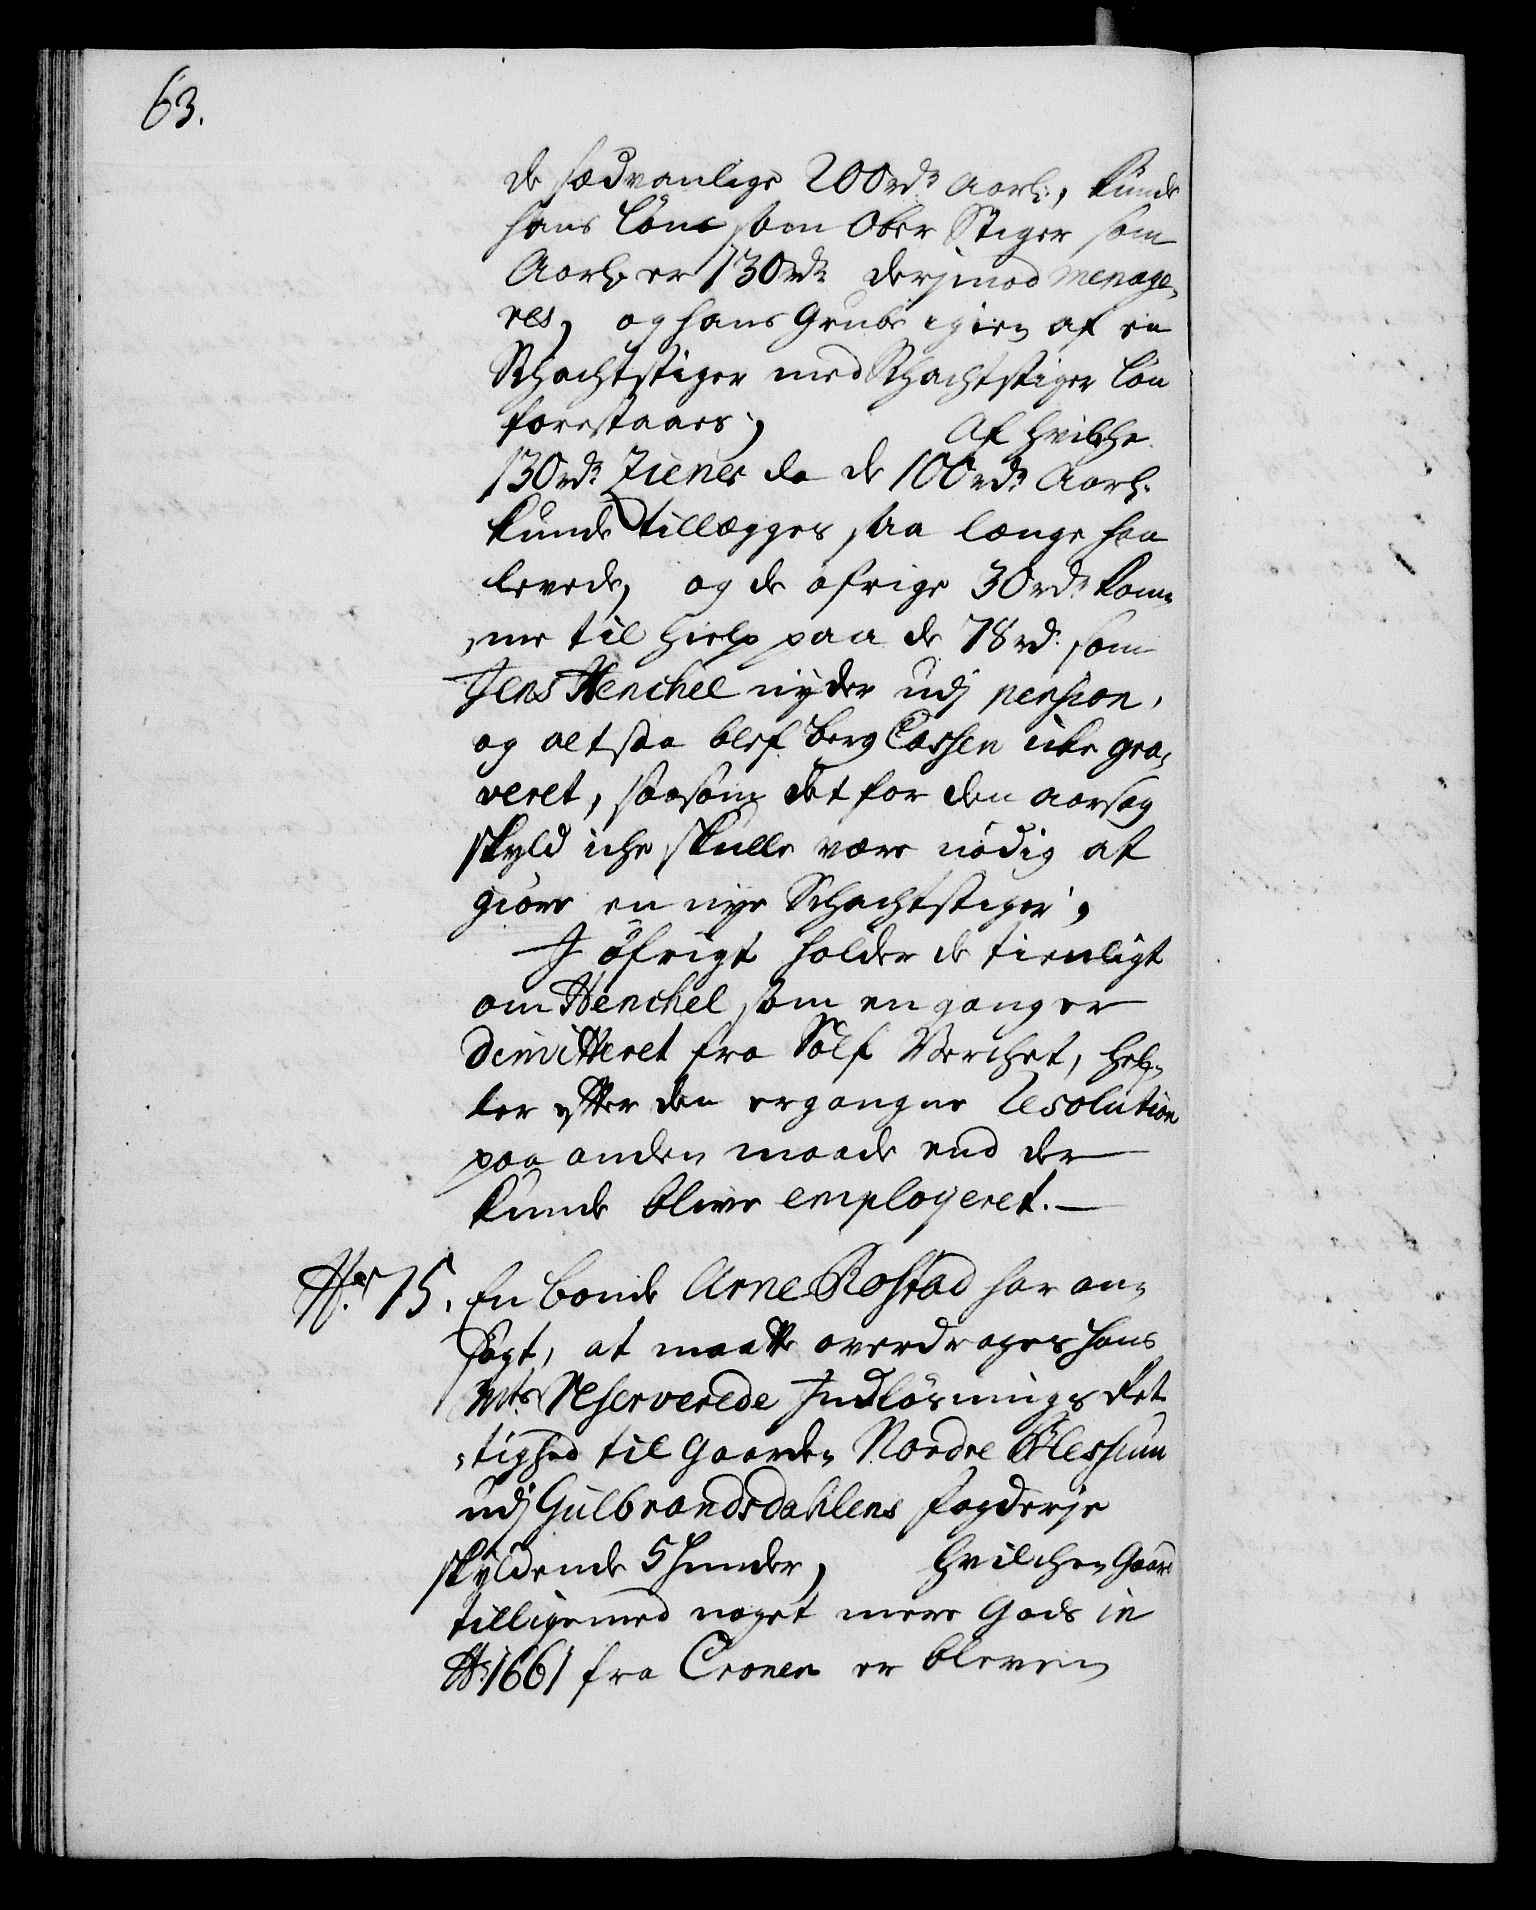 63.
de sædvanlige 200 rd. Aarl:, kunde
hans Løn som Ober Stiger som
Aarl. er 130 rd. derjmod menage-
res, og hans Grube igien af en
Schachtstiger med Schachtstiger Løn
forestaaes; Af hvilche
130 rd. Zienes da de 100 rd. Aarl.
kunde tillægges saa længe han
levede, og de øfrige 30 rd. kom-
me til Hielp paa de 78 rd. som
Jens Henchel nyder udj pension,
og altsaa blef Berg Cassen icke gra-
veret, saasom det for den aarsag
skyld iche skulle være nødig at
giøre en nye Schachtstiger;
J øfrigt holder de tienligt
om Henchel som en gang er
dimitteret fra Sølf Verchet, hel-
ler efter den ergangne Resolution
paa anden maade end der
kunde blive employeret.
No. 15. En bonde Arne Rostad har an-
søgt, at maatte overdrages hans
Mts. Reserverede Indløsnings Ret-
tighed til Gaarden Nordre Flessum
udj Gulbrandsdahlens Fogderje
skyldende 5 Hunder, hvilchen Gaard
tilligemed noget mere Gods in
Ao. 1661 fra Cronen er bleven